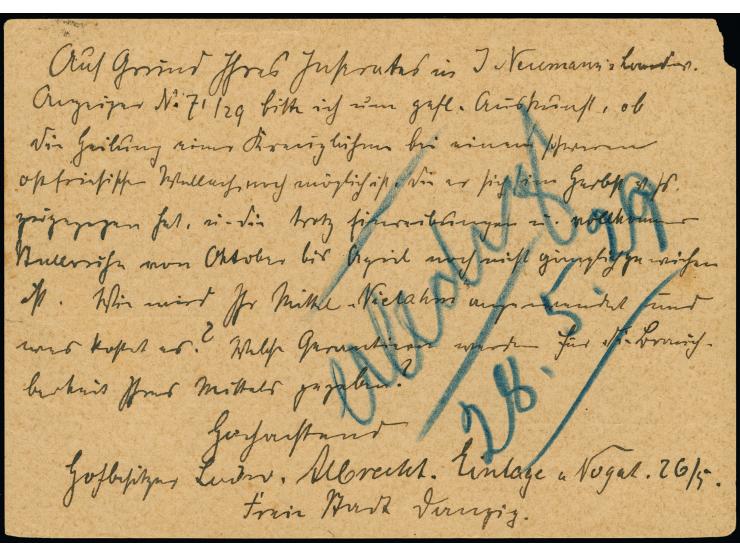 Auf Grund Ihres Inserates in J Neumanns Landw.
Anzeiger No 71/29 bitte ich um gefl. Auskunft, ob
die Heilung einer Kreuzlähme bei einem schweren
ostfriesischen Wallach noch möglich ist, die er sich im Herbst
zugezogen hat, u. die trotz Einreibungen u. vollkommener
Stallruhe von Oktober bis April noch nicht gänzlich gewichen
ist. Wie wird Ihr Mittel angewendet und
was kostet es? Welche Garantieen werden für die Brauch-
barkeit Ihres Mittels gegeben?
Hochachtend
Hofbesitzer Ludw. Albrecht. Einlage a Nogat. 26/5.
Freie Stadt Danzig.
28. 5. 29